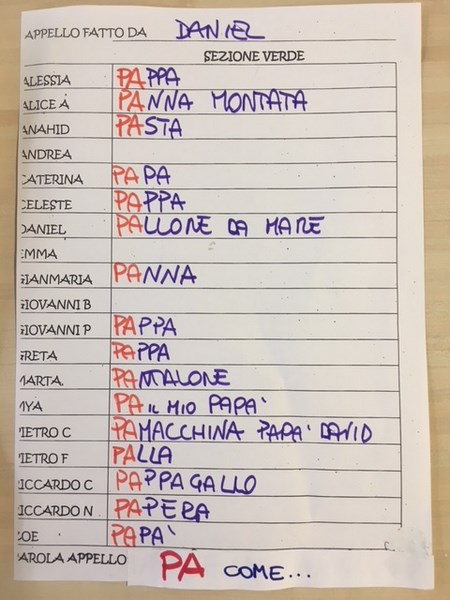 APPELLO FATTO DA DANIEL
SEZIONE VERDE
ALESSIA PAPPA
ALICE A PANNA MONTATA
ANAHID PASTA
ANDREA
CATERINA PAPA
CELESTE PAPPA
DANIEL PALLONE DA MARE
EMMA
GIANMARIA PANNA
GIOVANNI B
GIOVANNI P PAPPA
GRETA PAPPA
MARTA. PANTALONE
MYA PA IL MIO PAPA'
PIETRO C PAMACCHINA PAPA' DAVID
PIETRO F PALLA
RICCARDO C PAPPAGALLO
RICCARDO N PAPERA
ZOE PAPA'
PAROLA APPELLO PA COME...